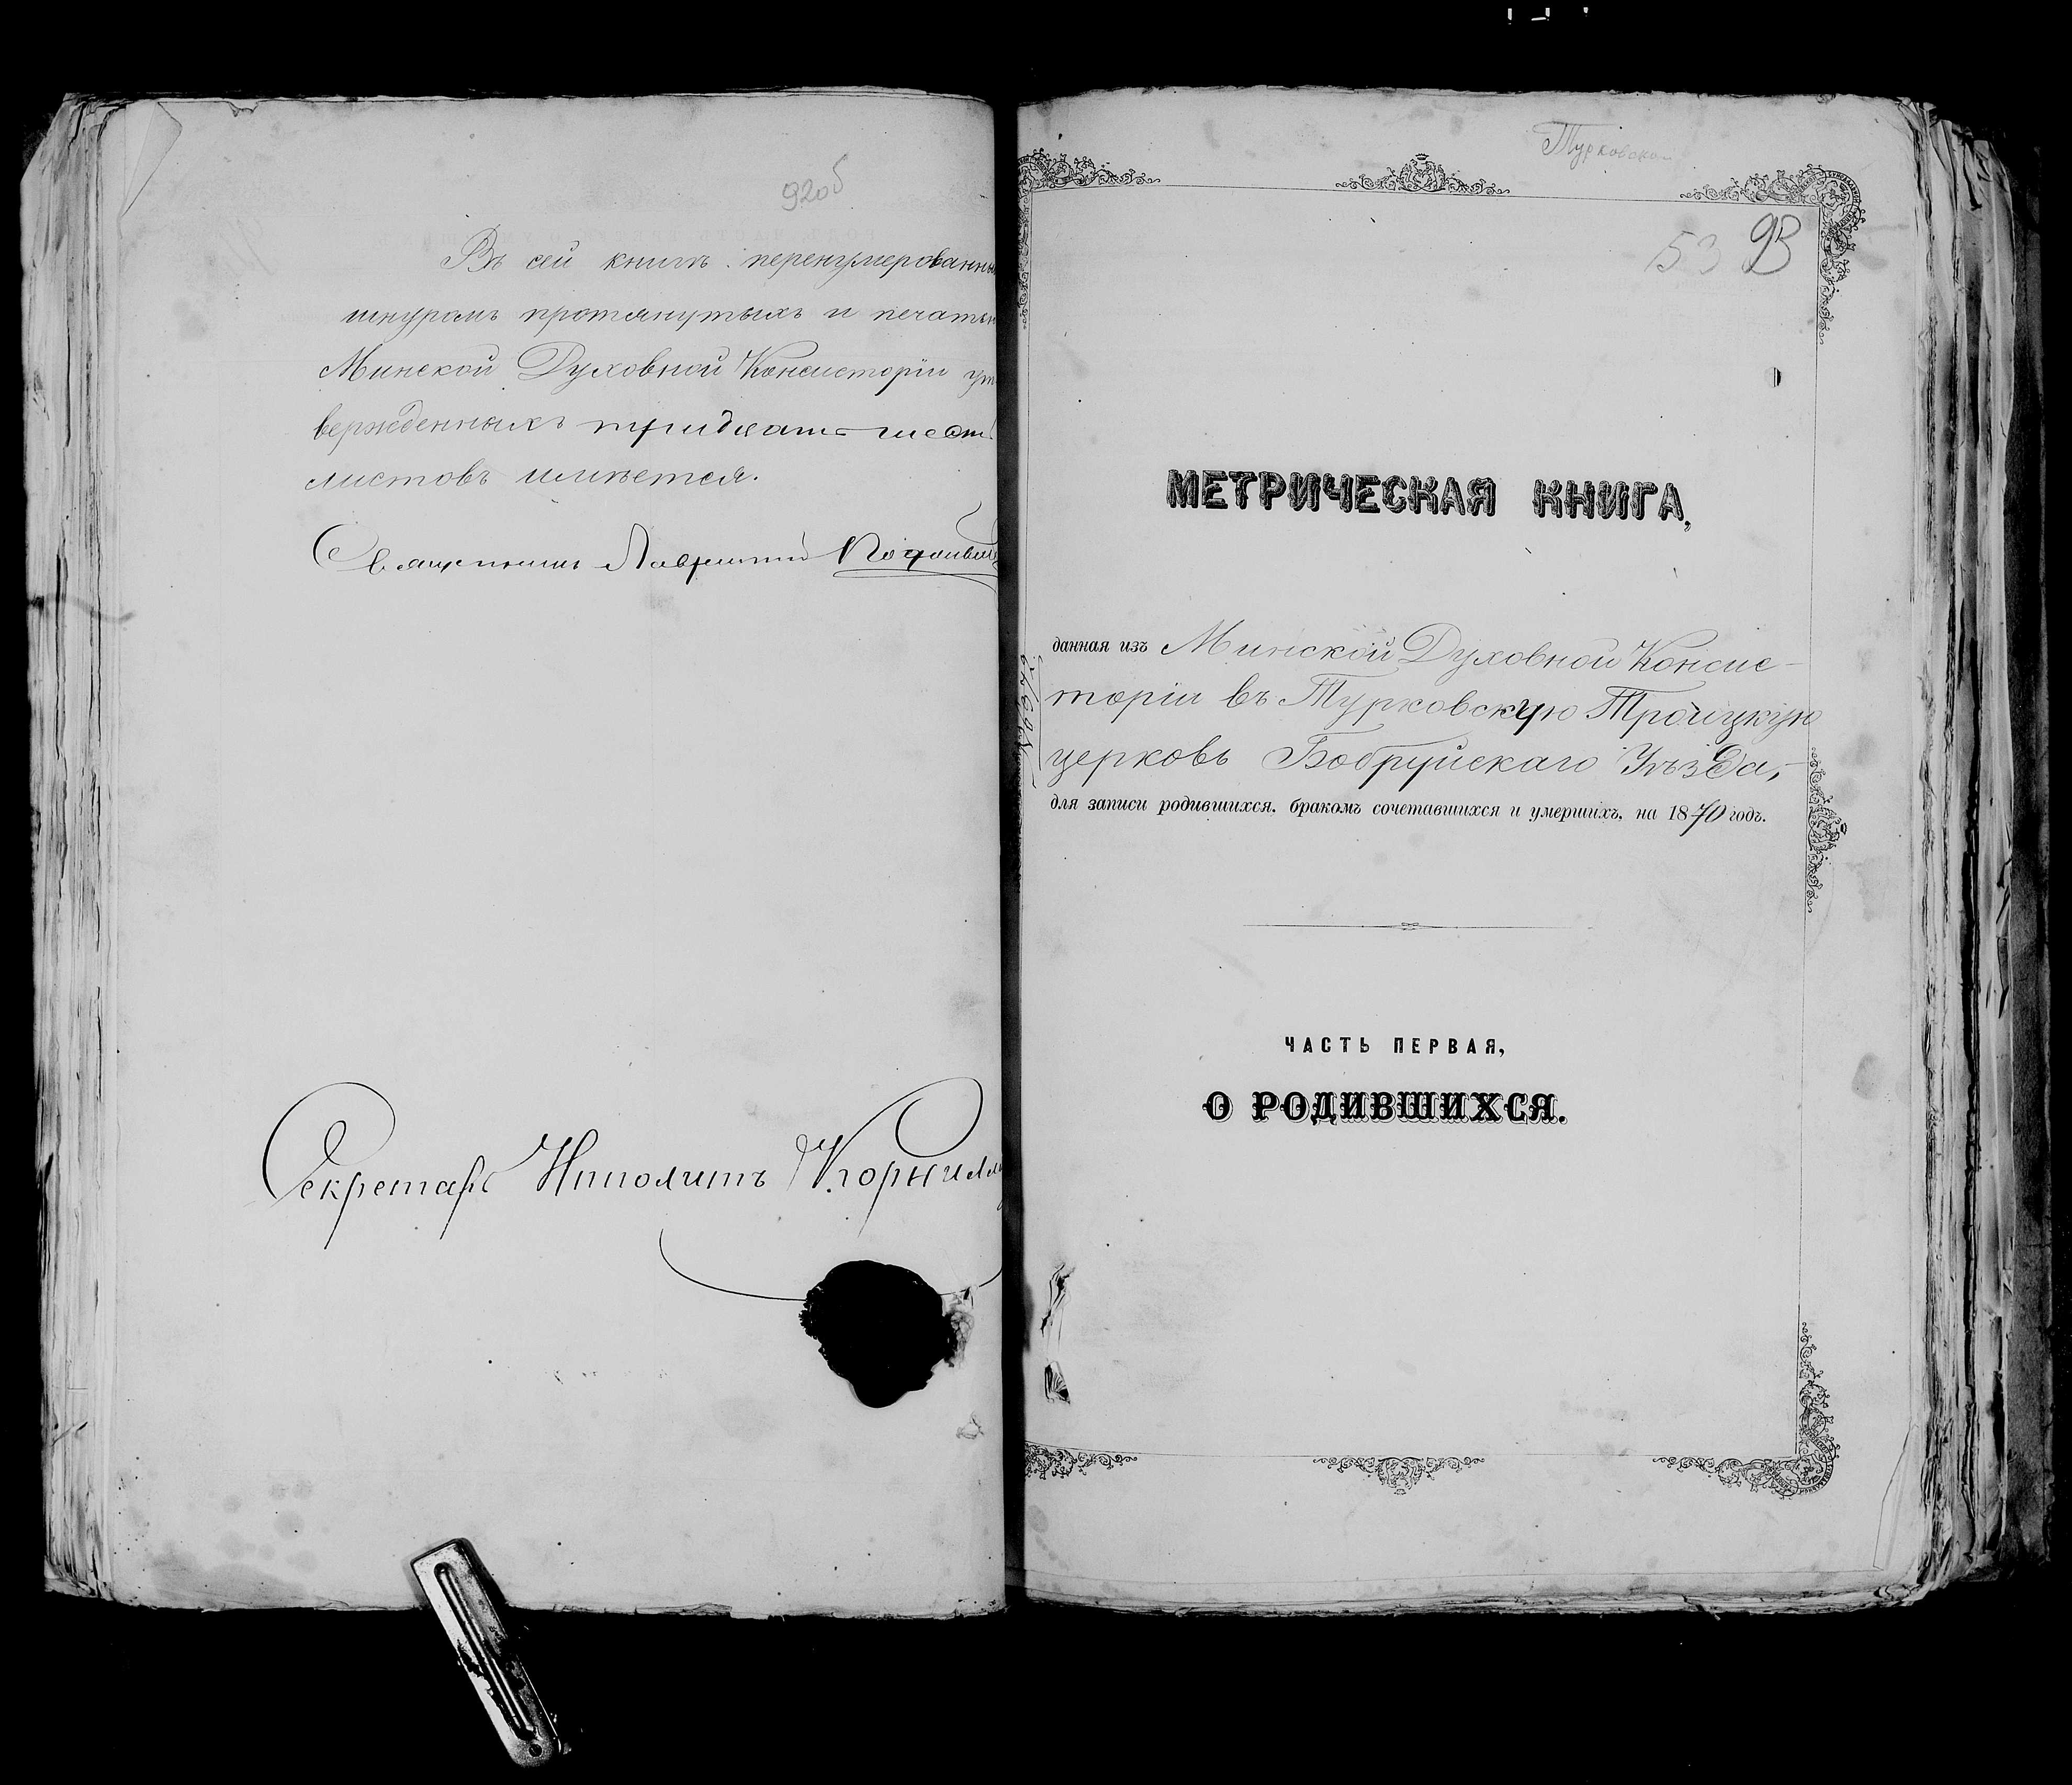 92об
Въ сей книгѣ перенумерованны
шнуромъ протянутыхъ и печатью
Минской Духовной Консисторіи ут
вержденныхъ тридцать шесть
листовъ имѣется.
Священникъ Лаврентій
Секретарь Иполитъ Корнил
Турковской
53 93
МЕТРИЧЕСКАЯ КНИГА,
данная изъ Минской Духовной Консис-
торіи въ Турковскую Троицкую
церковь Бобруйскаго Уѣзда,
для записи родившихся, бракомъ сочетавшихся и умершихъ, на 1870 годъ.
ЧАСТЬ ПЕРВАЯ,
О РОДИВШИХСЯ.